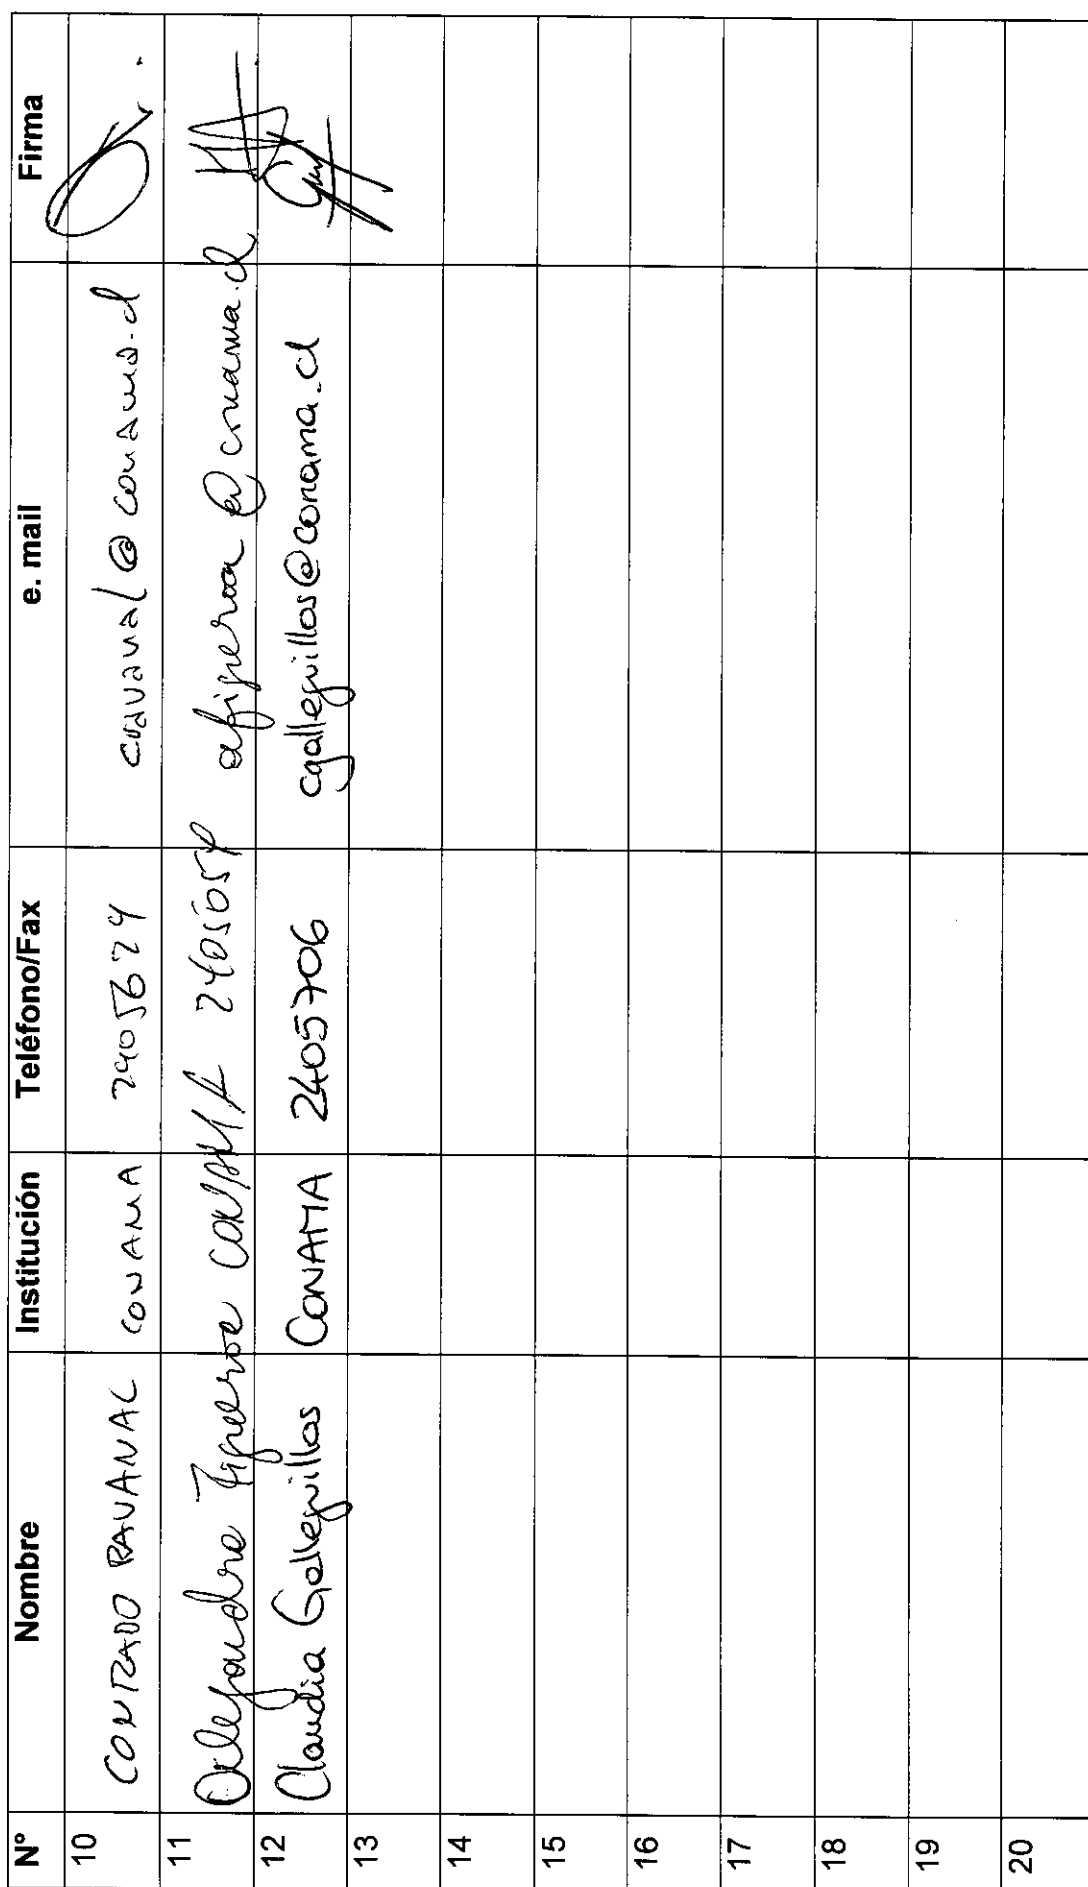 N° Nombre Institución Teléfono/Fax e. mail Firma
10 CONRADO RAVANAL CONAMA 2405624 cravanal@conama.cl
11 Alejandra Figueroa CONAMA afigueroa@conama.cl
12 Claudia Galleguillos CONAMA 2405706 cgalleguillos@conama.cl
13
14
15
16
17
18
19
20